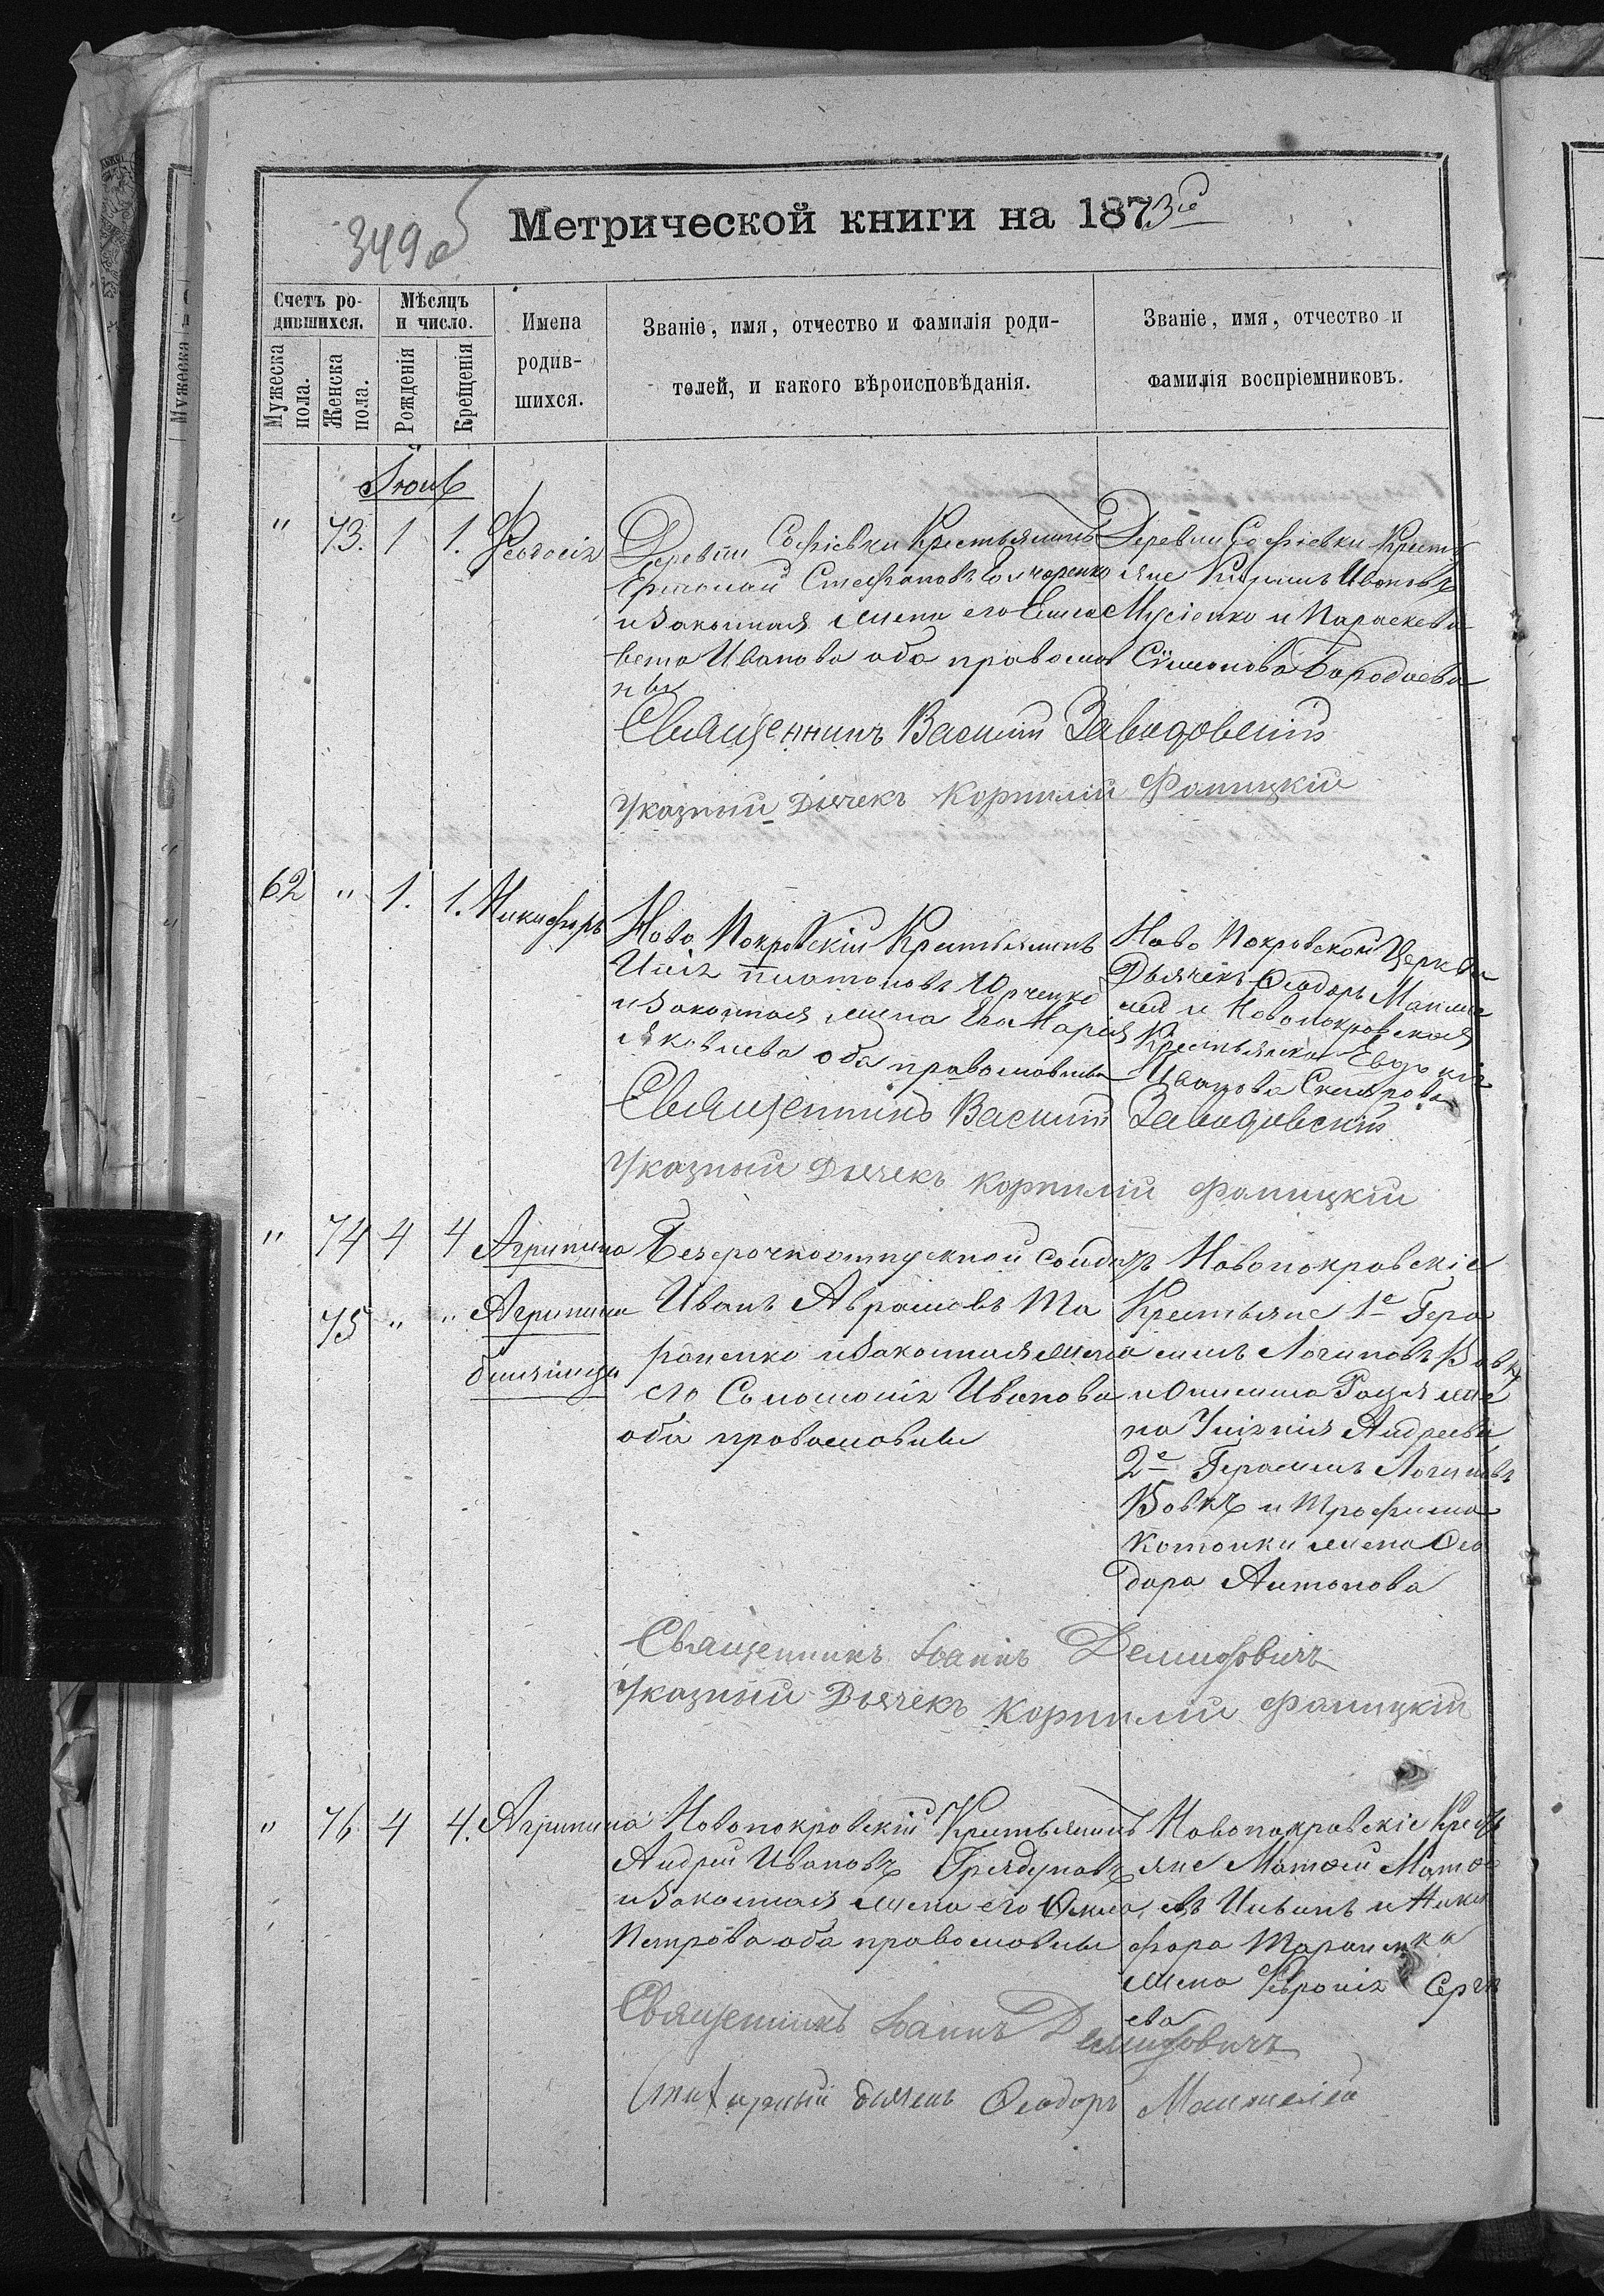 349 об
Метрической книги на 1873й
Счетъ ро-
дившихся.
Мужеска пола.
Женска пола.
Мѣсяцъ
и число.
Рожденія
Крещенія
Имена
родив-
шихся.
Званіе, имя, отчество и фамилія роди-
телей, и какого вѣроисповѣданія.
Званіе, имя, отчество и
фамилія воспріемниковъ.
Іюнь
" 73. 1 1. Ѳеодосія
Деревни Софіевки Крестьянинъ
Стефановъ Гончаренко
и Законная жена его Елиса
вета Иванова оба православ
ны
Деревни Софіевки Кресть
яне Кирилъ Ивановъ
Мусіенко и Параскева
Сѵмонова Бородаева
Священникъ Василій Завадовскій
Указный Дьячекъ Корнилій Фаницкій
62 " 1. 1. Никифоръ
Ново Покровскій Крестьянинъ
Илія Платоновъ Юрченко
и Законная жена Его Марія
Яковлева оба православны
Ново Покровской Церкви
Дьячекъ Ѳеодоръ Манже
лей и Новопокровская
Крестьянка Евдокія
Иванова Склярова
Священникъ Василій Завадовскій
Указный Дьячекъ Корнилій Фаницкій
" 74 4 4 Агрипина
75 " " Агрипина
близнецы
Безсрочноотпускной солдатъ
Иванъ Аврамовъ Та
раненко и Законная жена
его Соломонія Иванова
оба православны
Новопокровскіе
Крестьяне 1е Гера
симъ Логиновъ Вовкъ
и Онисима Гацуя же
на Ѵліянія Андреева
2е Герасимъ Логиновъ
Вовкъ и Трофима
Котенки жена Ѳео
дора Антонова
Священникъ Іоаннъ Демидовичъ
Указный Дьячекъ Корнилій Фаницкій
" 76. 4 4. Агрипина
Новопокровскій Крестьянинъ
Андрей Ивановъ Грядуновъ
и Законная жена его Ѳекла
Петрова оба православны
Новопокровскіе Кресть
яне Матѳей Матѳе
евъ и Ники
фора Тараненка
жена Февронія Сергѣ
ева
Священникъ Іоаннъ Демидовичъ
Стихарный дьячекъ Ѳеодоръ Манжелей